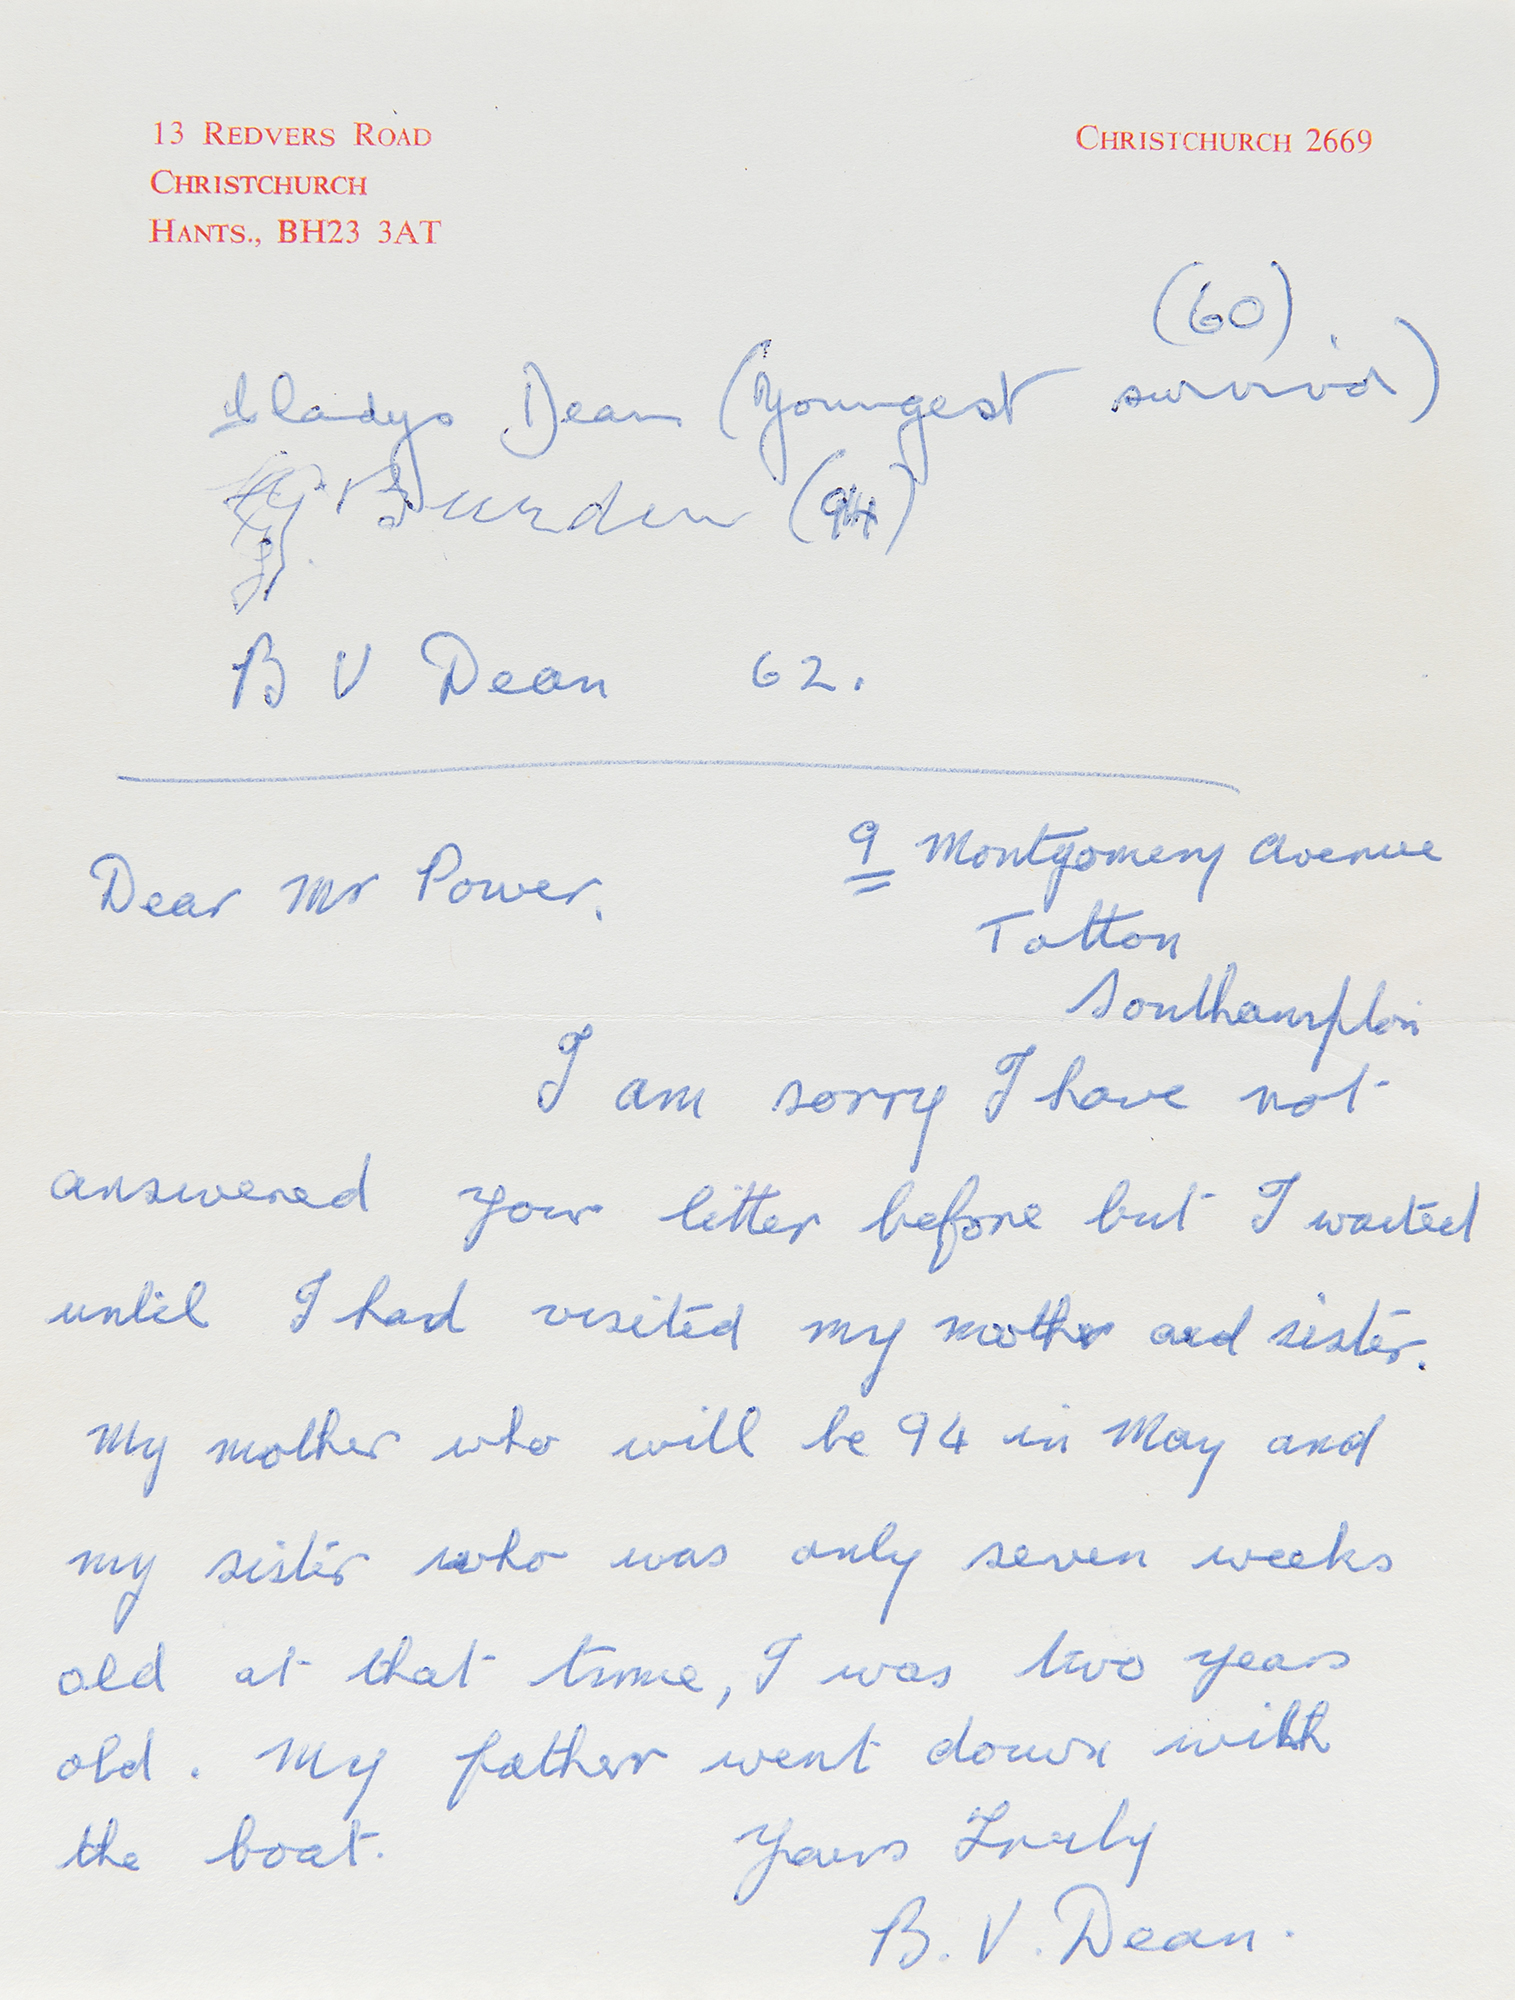 13 REDVERS ROAD
CHRISTCHURCH
HANTS., BH23 3AT
CHRISTCHURCH 2669
(60)
Gladys Dean (Youngest survivor)
Burden (94)
B V Dean 62.
Dear Mr Power.
9 Montgomery Avenue
Totton
Southampton
I am sorry I have not
answered your letter before but I waited
until I had visited my mother and sister.
My mother who will be 94 in May and
my sister who was only seven weeks
old at that time, I was two years
old. My father went down with
the boat.
Yours Truly
B. V. Dean.